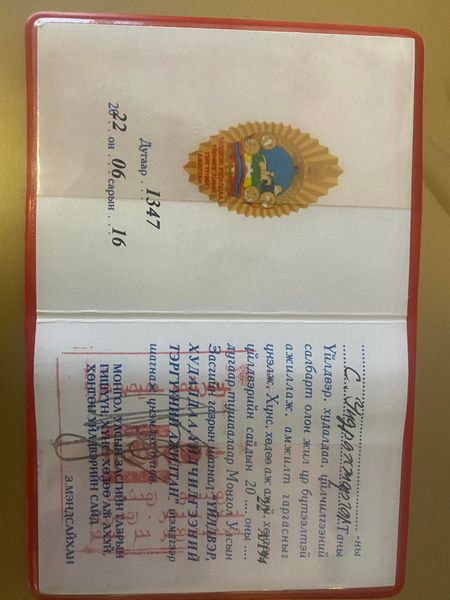 Дугаар . 1347
2022 он . 06 сарын . 16
-ны
Таны
Үйлдвэр, худалдаа, үйлчилгээний
салбарт олон жил үр бүтээлтэй
ажиллаж, амжилт гаргасныг
үнэлж, Хүнс, хөдөө аж ахуй, хөнгөн
үйлдвэрийн сайдын 20 22 оны
дугаар тушаалаар Монгол Улсын
Засгийн газрын шагнал "ҮЙЛДВЭР,
ХУДАЛДАА, ҮЙЛЧИЛГЭЭНИЙ
ТЭРГҮҮНИЙ АЖИЛТАН" тэмдгээр
шагнаж, үнэмлэх олгов.
МОНГОЛ УЛСЫН ЗАСГИЙН ГАЗРЫН
ГИШҮҮН, ХҮНС, ХӨДӨӨ АЖ АХУЙ,
ХӨНГӨН ҮЙЛДВЭРИЙН САЙД
З.МЭНДСАЙХАН